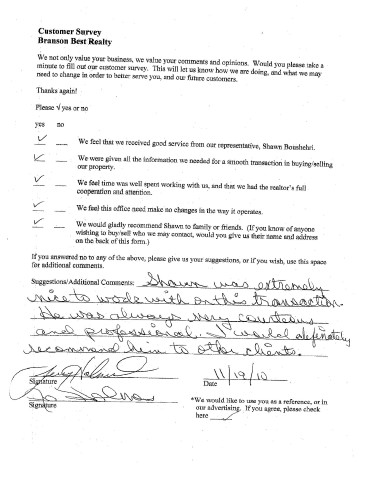 Customer Survey
Branson Best Realty
We not only value your business, we value your comments and opinions. Would you please take a
minute to fill out our customer survey. This will let us know how we are doing, and what we may
need to change in order to better serve you, and our future customers.
Thanks again!
Please √ yes or no
yes no
✓ __ We feel that we received good service from our representative, Shawn Boushehri.
✓ __ We were given all the information we needed for a smooth transaction in buying/selling
our property.
✓ __ We feel time was well spent working with us, and that we had the realtor's full
cooperation and attention.
✓ __ We feel this office need make no changes in the way it operates.
✓ __ We would gladly recommend Shawn to family or friends. (If you know of anyone
wishing to buy/sell who we may contact, would you give us their name and address
on the back of this form.)
If you answered no to any of the above, please give us your suggestions, or if you wish, use this space
for additional comments.
Suggestions/Additional Comments: Shawn was extremely
nice to work with on this transaction.
He was always very courteous
and professional. I would definately
recommend him to other clients.
11/19/10
Signature Date
Signature
*We would like to use you as a reference, or in
our advertising. If you agree, please check
here ✓